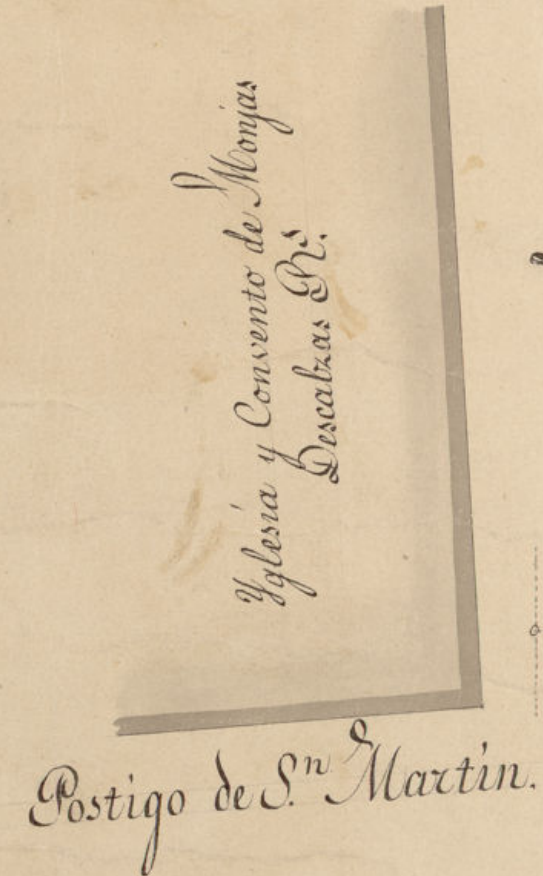 Yglesia y Convento de Monjas
Descalzas R.s
Postigo de S.n Martín.